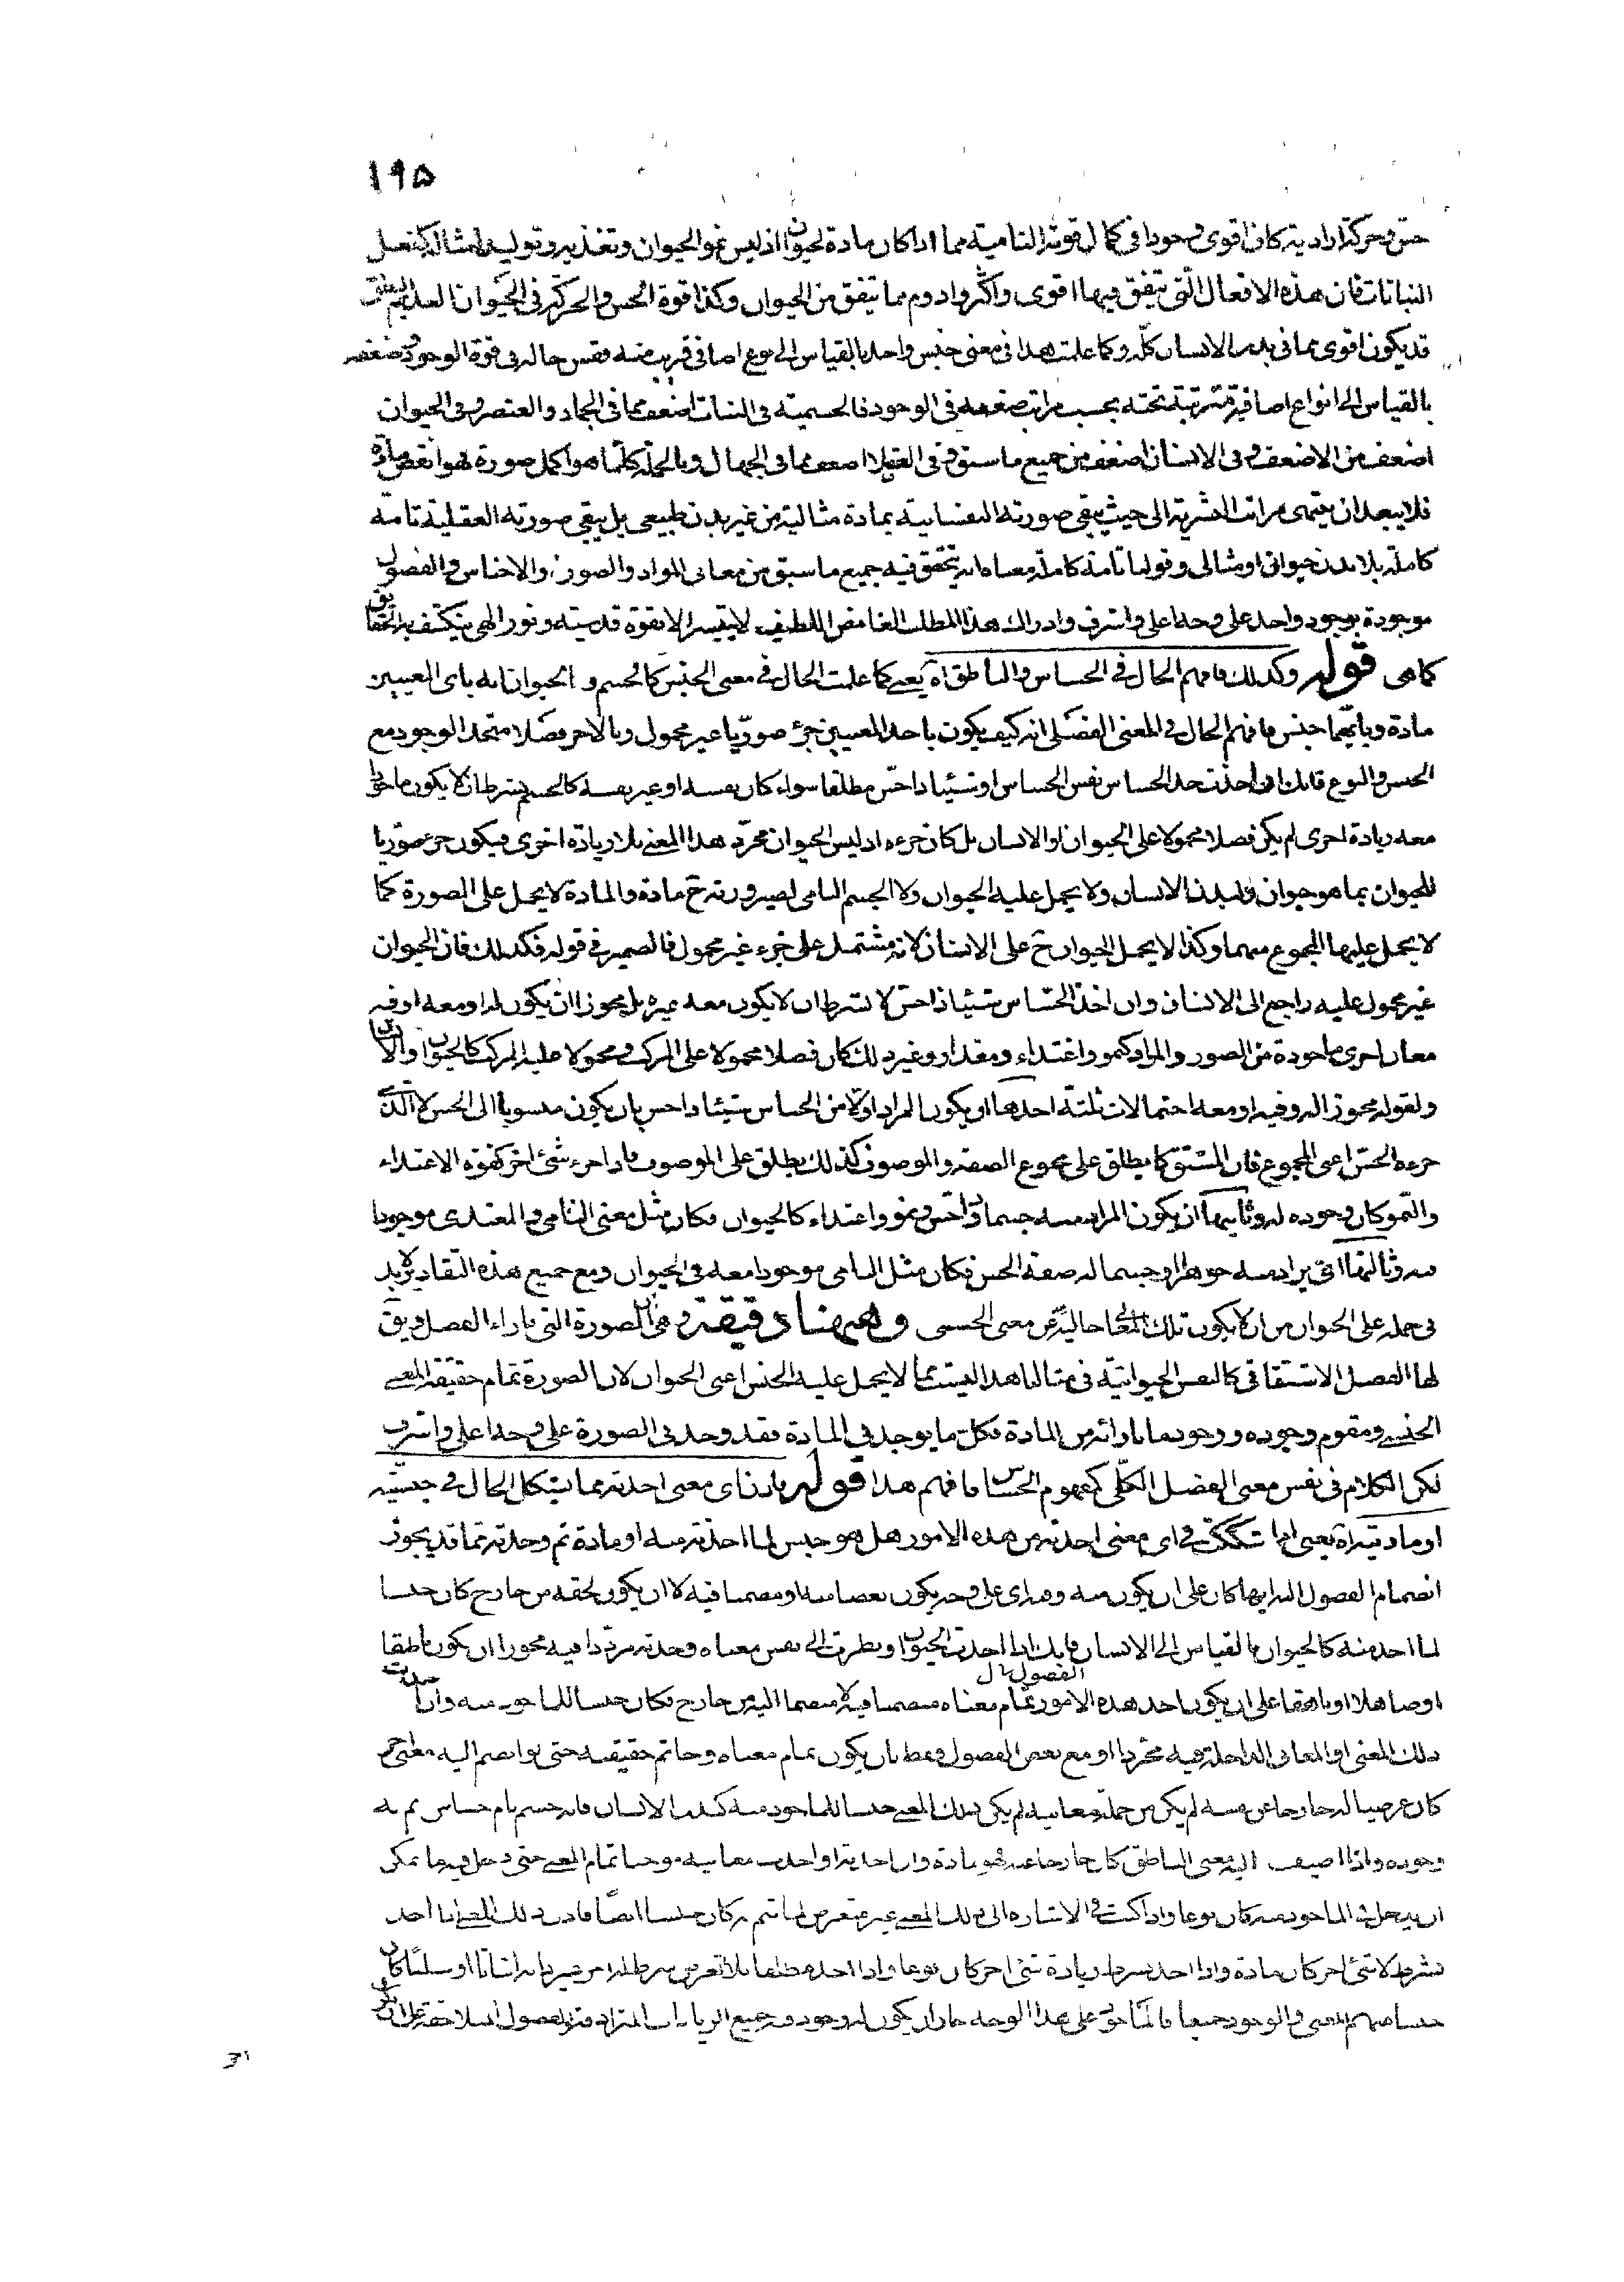 ١٩٥
حس وحركة ارادية كان اقوى وجودا فى كمال قوته النامية مما اذا كان مادة لحيوان اذ ليس نمو الحيوان وتغذيه وتوليده لمثاله كفعل
النباتات فان هذه الافعال التى تتفق فيها اقوى واكثر وادوم مما تتفق من الحيوان وكذا قوة الحس والحركة فى الحيوان العديم النطق
قد يكون اقوى مما فى بدن الانسان كله وكما علمت هذا فى معنى جنس واحد بالقياس الى نوع اضافى قريب منه فقس حاله فى قوة الوجود وضعفه
بالقياس الى انواع اضافية مترتبة تحته بحسب مراتب ضعفه فى الوجود فالجسمية فى النبات اضعف مما فى الجماد والعنصر وفى الحيوان
اضعف من الاضعف وفى الانسان اضعف من جميع ما سبق وفى العقلا اضعف مما فى الجهال وبالجملة كلما هو اكمل صورة فهو انقص مادة
فلا يبعد ان ينتهى مراتب البشرية الى حيث يبقى صورته النفسانية بمادة مثالية من غير بدن طبيعى بل يبقى صورته العقلية تامة
كاملة بلا بدن حيوانى او مثالى وقولنا تامة كاملة معناه انه يتحقق فيه جميع ما سبق من معانى المواد والصور والاجناس والفصول
موجودة بوجود واحد على وجه اعلى واشرف وادراك هذا المطلب الغامض اللطيف لا يتيسر الا بقوة قدسية ونور الهى ينكشف به الحقايق
كما هى قوله وكذلك فافهم الحال فى الحساس والناطق اه يعنى كما علمت الحال فى معنى الجنس كالجسم والحيوان انه باى المعنيين
مادة وبايهما جنس فافهم الحال فى المعنى الفصلى انه كيف يكون باحد المعنيين جزء صوريا غير محمول وبالاخر فصلا متحد الوجود مع
الجنس والنوع فانك ان اخذت حد الحساس نفس الحساس او شيئا ذا حس مطلقا سواء كان نفسه او غير نفسه كالجسم بشرط ان لا يكون ماخوذا
معه زيادة اخرى لم يكن فصلا محمولا على الحيوان او الانسان بل كان جزءه اذ ليس الحيوان مجرد هذا المعنى بلا زيادة اخرى فيكون جزء صوريا
للحيوان بما هو حيوان ولبدن الانسان ولا يحمل عليه الحيوان ولا الجسم النامى لصيرورته ح مادة والمادة لا يحمل على الصورة كما
لا يحمل عليها المجموع منهما وكذا لا يحمل الحيوان ح على الانسان لانه مشتمل على جزء غير محمول فالضمير فى قوله فكذلك فان الحيوان
غير محمول عليه راجع الى الانسان وان اخذ الحساس شيئا ذا حس لا بشرط ان لا يكون معه غيره بل يجوز ان يكون له او معه او فيه
معان اخرى ماخوذة من الصور والمواد كنمو واغتذاء ومقدار وغير ذلك كان فصلا محمولا على المركب ومحمولا عليه المركب كالحيوان والانسان
ولقوله مجوز اله وفيه او معه احتمالات ثلثة احدها ان يكون المراد اولا من الحساس شيئا ذا حس بان يكون منسوبا الى الحس لا الذى
جزءه الحس اعنى المجموع فان المشتق كما يطلق على مجموع الصفة والموصوف كذلك يطلق على الموصوف فاذا جزء شئ اخر كقوة الاغتذاء
والنمو كان وجوده له وثانيها ان يكون المراد منه جسما ذا حس ونمو واغتذاء كالحيوان فكان مثل معنى النامى والمغتذى موجودا
فيه وثالثها ان يراد منه جوهرا وجسما له صفة الحس فكان مثل النامى موجودا معه فى الحيوان ومع جميع هذه التقادير لا بد
فى حمله على الحيوان من ان لا يكون تلك المعانى خالية عن معنى الجسمى وههنا دقيقة وهى ان الصورة التى بازاء الفصل ويق
لها الفصل الاشتقاقى كالنفس الحيوانية فى مثالنا هذا ليست مما لا يحمل عليه الجنس اعنى الحيوان لان الصورة تمام حقيقة المعنى
الجنسى ومقوم وجوده ووجود ما بازائه من المادة فكل ما يوجد فى المادة فقد وجد فى الصورة على وجه اعلى واشرف
لكن الكلام فى نفس معنى الفصل الكلى كمفهوم الحساس فافهم هذا قوله فاذن اى معنى اخذته مما يشكل الحال فى جنسيته
او ماديته اه يعنى اذا تشككت فى اى معنى اخذته من هذه الامور هل هو جنس لما اخذته منه او مادة ثم وجدته مما قد يجوز
انضمام الفصول اليه ايها كان على ان يكون منه وفيه اى على وجه يكون بعضا منه او مضمنا فيه لا ان يكون لحقه من خارج كان جنسا
لما اخذ منه كالحيوان بالقياس الى الانسان فانك اذا اخذت الحيوان ونظرت الى نفس معناه وجدته مرددا فيه مجوزا ان يكون ناطقا
او صاهلا او ناهقا على ان يكون احد هذه الامور الفصول تمام معناه متضمنا فيه لا منضما اليه من خارج فكان جنسا للماخوذ منه وان اخذت
ذلك المعنى او المعانى الداخلة فيه مجردا او مع بعض الفصول فقط بان يكون تمام معناه وخاتم حقيقته حتى لو انضم اليه معنى اخر
كان عرضيا له خارجا عن نفسه لم يكن من جملة معانيه لم يكن ذلك المعنى جنسا للماخوذ منه كبدن الانسان فانه جسم نام حساس تم به
وجوده واذا اضيف اليه معنى الناطق كان خارجا عنه فهو مادة وان اخذته او اخذت معانيه موجبا تمام المعنى حتى دخل فيه ما يمكن
ان يدخل فى الماخوذ منه كان نوعا واذا كنت فى الاشارة الى ذلك المعنى غير متعرض لما تم به كان جنسا ايضا فاذن ذلك المعنى اذا اخذ
بشرط لا شئ اخر كان مادة واذا اخذ بشرط زيادة شئ اخر كان نوعا واذا اخذ مطلقا بلا تعرض